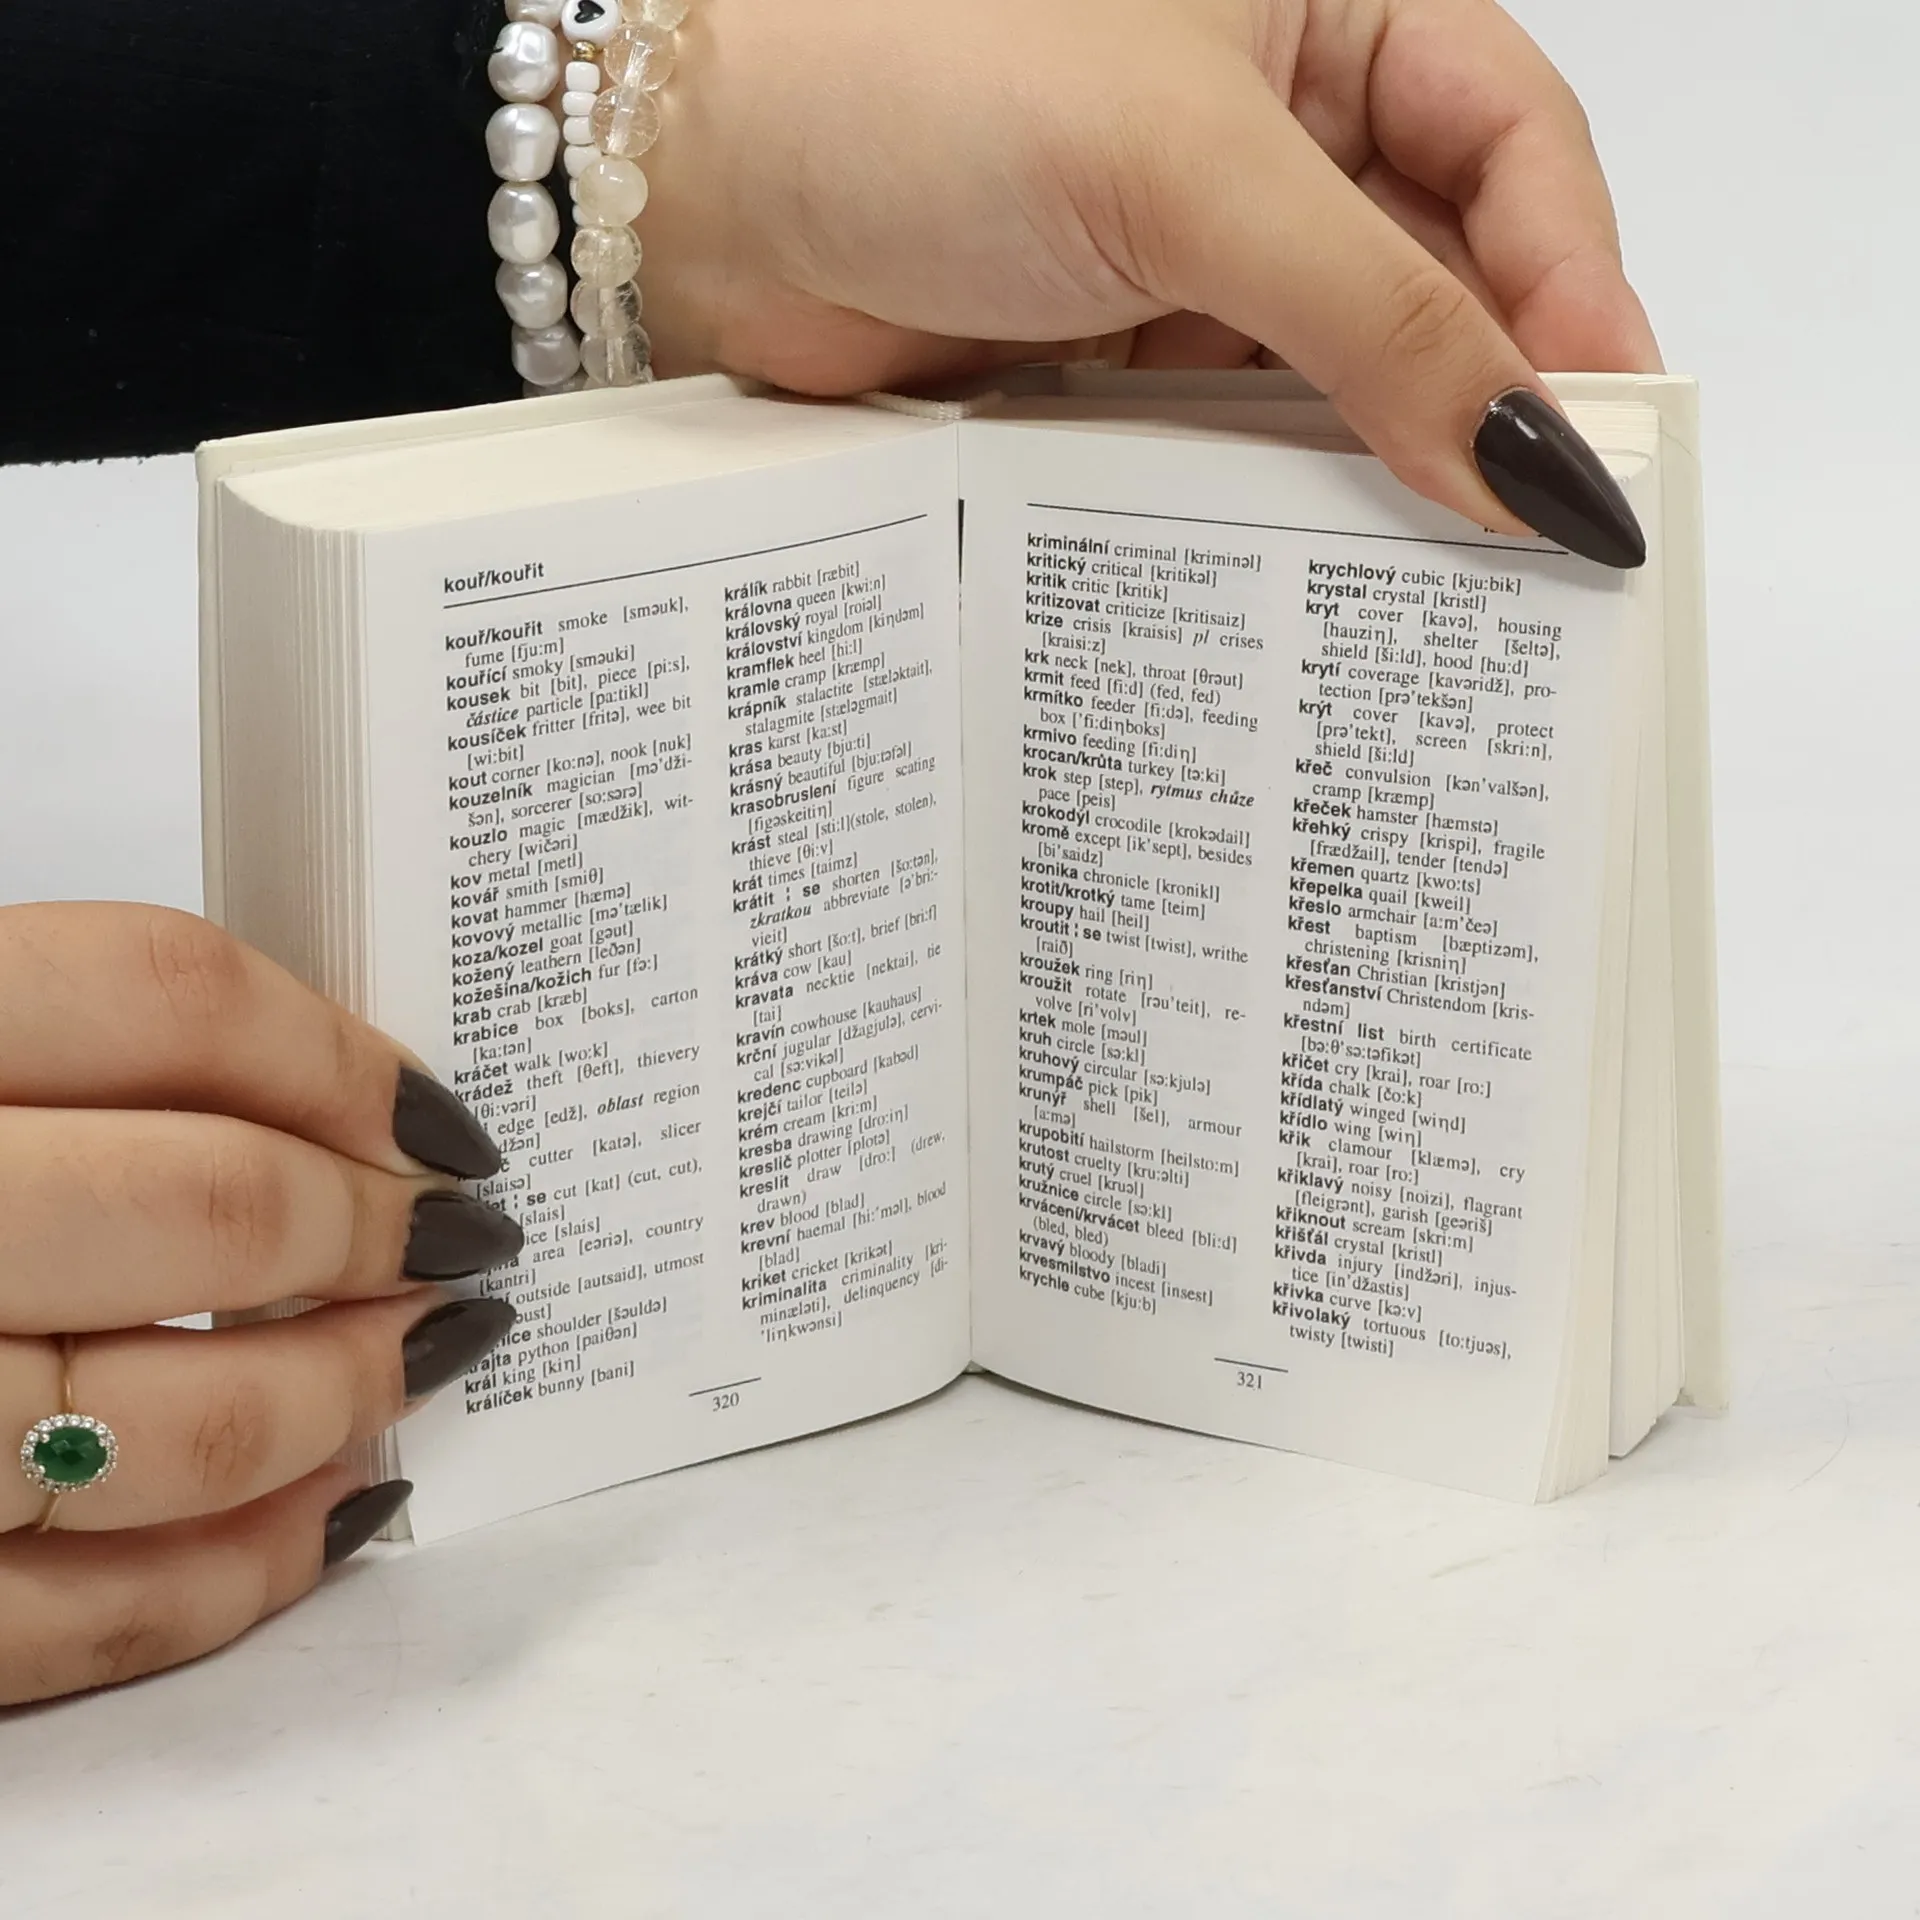 kouř/kouřit
kouř/kouřit smoke [sməuk],
fume [fju:m]
kouřící smoky [sməuki]
kousek bit [bit], piece [pi:s],
částice particle [pa:tikl]
kousíček fritter [fritə], wee bit
[wi:bit]
kout corner [ko:nə], nook [nuk]
kouzelník magician [mə'dži-
šən], sorcerer [so:sərə]
kouzlo magic [mædžik], wit-
chery [wičəri]
kov metal [metl]
kovář smith [smiθ]
kovat hammer [hæmə]
kovový metallic [mə'tælik]
koza/kozel goat [gəut]
kožený leathern [leðən]
kožešina/kožich fur [fə:]
krab crab [kræb]
krabice box [boks], carton
[ka:tən]
kráčet walk [wo:k]
krádež theft [θeft], thievery
[θi:vəri]
edge [edž], oblast region
džən]
cutter [katə], slicer
[slaisə]
se cut [kat] (cut, cut),
[slais]
[slais]
area [eəriə], country
[kantri]
outside [autsaid], utmost
shoulder [šəuldə]
python [paiθən]
král king [kiη]
králíček bunny [bani]
králík rabbit [ræbit]
královna queen [kwi:n]
královský royal [roiəl]
království kingdom [kiηdəm]
kramflek heel [hi:l]
kramle cramp [kræmp]
krápník stalactite [stæləktait],
stalagmite [stæləgmait]
kras karst [ka:st]
krása beauty [bju:ti]
krásný beautiful [bju:təfəl]
krasobruslení figure scating
[figəskeitiη]
krást steal [sti:l](stole, stolen),
thieve [θi:v]
krát times [taimz]
krátit ¦ se shorten [šo:tən],
zkratkou abbreviate [ə'bri:-
vieit]
krátký short [šo:t], brief [bri:f]
kráva cow [kau]
kravata necktie [nektai], tie
[tai]
kravín cowhouse [kauhaus]
krční jugular [džagjulə], cervi-
cal [sə:vikəl]
kredenc cupboard [kabəd]
krejčí tailor [teilə]
krém cream [kri:m]
kresba drawing [dro:iη]
kreslič plotter [plotə]
kreslit draw [dro:] (drew,
drawn)
krev blood [blad]
krevní haemal [hi:'məl], blood
[blad]
kriket cricket [krikət]
kriminalita criminality [kri-
minæləti], delinquency [di-
'liηkwənsi]
320
kriminální criminal [kriminəl]
kritický critical [kritikəl]
kritik critic [kritik]
kritizovat criticize [kritisaiz]
krize crisis [kraisis] pl crises
[kraisi:z]
krk neck [nek], throat [θrəut]
krmit feed [fi:d] (fed, fed)
krmítko feeder [fi:də], feeding
box ['fi:diηboks]
krmivo feeding [fi:diη]
krocan/krůta turkey [tə:ki]
krok step [step], rytmus chůze
pace [peis]
krokodýl crocodile [krokədail]
kromě except [ik'sept], besides
[bi'saidz]
kronika chronicle [kronikl]
krotit/krotký tame [teim]
kroupy hail [heil]
kroutit ¦ se twist [twist], writhe
[raið]
kroužek ring [riη]
kroužit rotate [rəu'teit], re-
volve [ri'volv]
krtek mole [məul]
kruh circle [sə:kl]
kruhový circular [sə:kjulə]
krumpáč pick [pik]
krunýř shell [šel], armour
[a:mə]
krupobití hailstorm [heilsto:m]
krutost cruelty [kru:əlti]
krutý cruel [kruəl]
kružnice circle [sə:kl]
krvácení/krvácet bleed [bli:d]
(bled, bled)
krvavý bloody [bladi]
krvesmilstvo incest [insest]
krychle cube [kju:b]
krychlový cubic [kju:bik]
krystal crystal [kristl]
kryt cover [kavə], housing
[hauziη], shelter [šeltə],
shield [ši:ld], hood [hu:d]
krytí coverage [kavəridž], pro-
tection [prə'tekšən]
krýt cover [kavə], protect
[prə'tekt], screen [skri:n],
shield [ši:ld]
křeč convulsion [kən'valšən],
cramp [kræmp]
křeček hamster [hæmstə]
křehký crispy [krispi], fragile
[frædžail], tender [tendə]
křemen quartz [kwo:ts]
křepelka quail [kweil]
křeslo armchair [a:m'čeə]
křest baptism [bæptizəm],
christening [krisniη]
křesťan Christian [kristjən]
křesťanství Christendom [kris-
ndəm]
křestní list birth certificate
[bə:θ'sə:təfikət]
křičet cry [krai], roar [ro:]
křída chalk [čo:k]
křídlatý winged [wiηd]
křídlo wing [wiη]
křik clamour [klæmə], cry
[krai], roar [ro:]
křiklavý noisy [noizi], flagrant
[fleigrənt], garish [geəriš]
křiknout scream [skri:m]
křišťál crystal [kristl]
křivda injury [indžəri], injus-
tice [in'džastis]
křivka curve [kə:v]
křivolaký tortuous [to:tjuəs],
twisty [twisti]
321